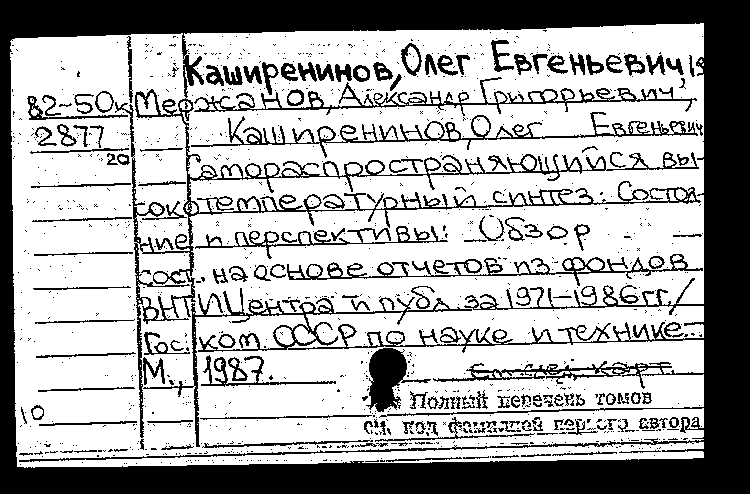 Каширенинов, Олег Евгеньевич, 19
82-50к Мержанов, Александр Григорьевич,
2877 Каширенинов, Олег Евгеньевич
20 Самораспространяющийся вы-
сокотемпературный синтез: Состоя-
ние и перспективы: Обзор
сост. на основе отчетов из фондов
ВНТИЦентра и публ. за 1971-1986гг./
Гос. ком. СССР по науке и технике...
М., 1987.
См. след. карт.
10 Полный перечень томов
см. под фамилией первого автора